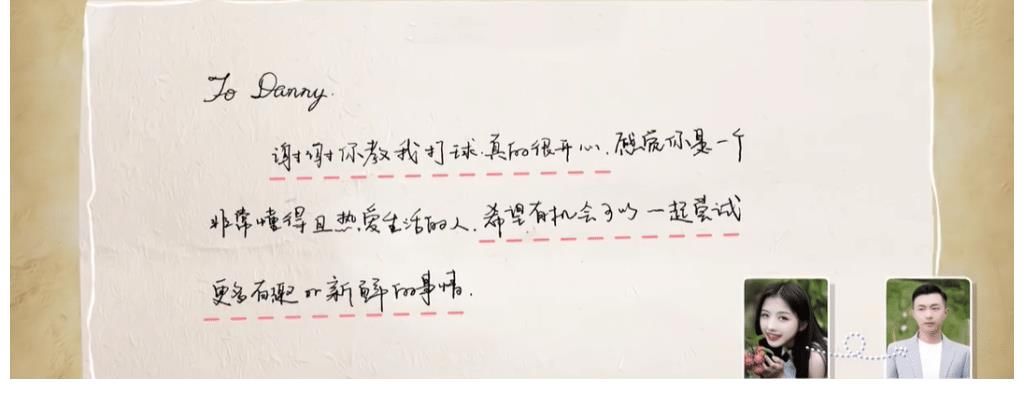 To Danny.
谢谢你教我打球.真的很开心.感觉你是一个
非常懂得且热爱生活的人.希望有机会可以一起尝试
更多有趣或新鲜的事情.